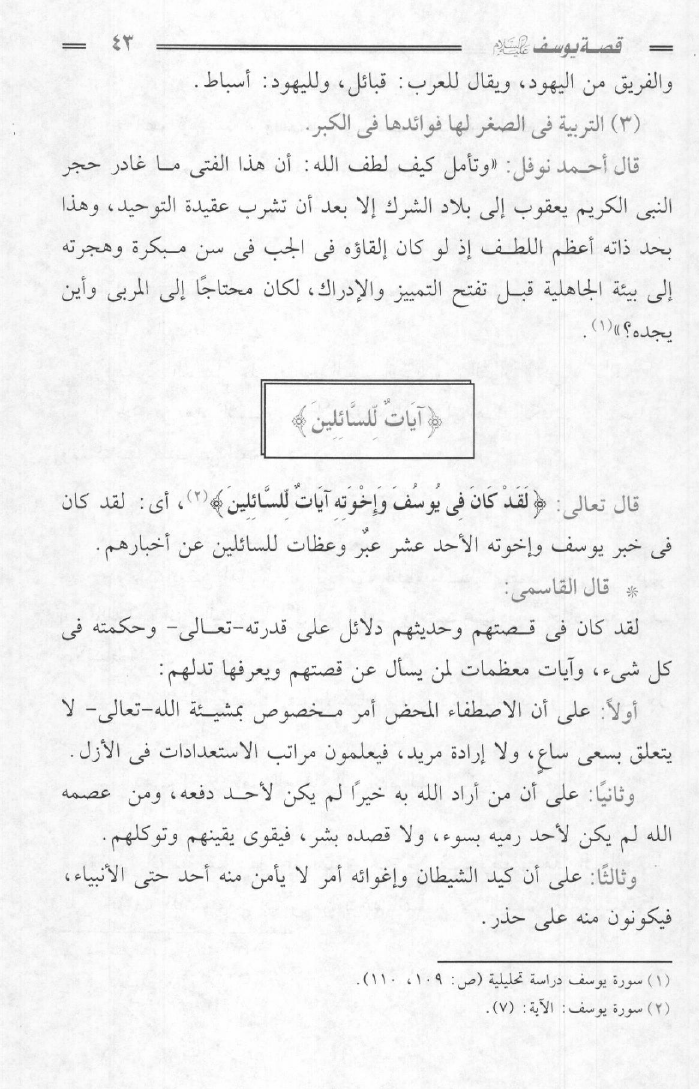 قصة يوسف عليه السلام ٤٣
والفريق من اليهود، ويقال للعرب: قبائل، ولليهود: أسباط.
(٣) التربية فى الصغر لها فوائدها فى الكبر.
قال أحمد نوفل: «وتأمل كيف لطف الله: أن هذا الفتى ما غادر حجر
النبى الكريم يعقوب إلى بلاد الشرك إلا بعد أن تشرب عقيدة التوحيد، وهذا
بحد ذاته أعظم اللطف إذ لو كان إلقاؤه فى الجب فى سن مبكرة وهجرته
إلى بيئة الجاهلية قبل تفتح التمييز والإدراك، لكان محتاجًا إلى المربى وأين
يجده؟»(١).
﴿آيَاتٌ لِّلسَّائِلِينَ﴾
قال تعالى: ﴿لَقَدْ كَانَ فِى يُوسُفَ وَإِخْوَتِهِ آيَاتٌ لِّلسَّائِلِينَ﴾(٢)، أى: لقد كان
فى خبر يوسف وإخوته الأحد عشر عبرٌ وعظات للسائلين عن أخبارهم.
* قال القاسمى:
لقد كان فى قصتهم وحديثهم دلائل على قدرته-تعالى- وحكمته فى
كل شىء، وآيات معظمات لمن يسأل عن قصتهم ويعرفها تدلهم:
أولاً: على أن الاصطفاء المحض أمر مخصوص بمشيئة الله-تعالى- لا
يتعلق بسعى ساعٍ، ولا إرادة مريد، فيعلمون مراتب الاستعدادات فى الأزل.
وثانيًا: على أن من أراد الله به خيرًا لم يكن لأحد دفعه، ومن عصمه
الله لم يكن لأحد رميه بسوء، ولا قصده بشر، فيقوى يقينهم وتوكلهم.
وثالثًا: على أن كيد الشيطان وإغوائه أمر لا يأمن منه أحد حتى الأنبياء،
فيكونون منه على حذر.
(١) سورة يوسف دراسة تحليلية (ص: ١٠٩، ١١٠).
(٢) سورة يوسف: الآية: (٧).